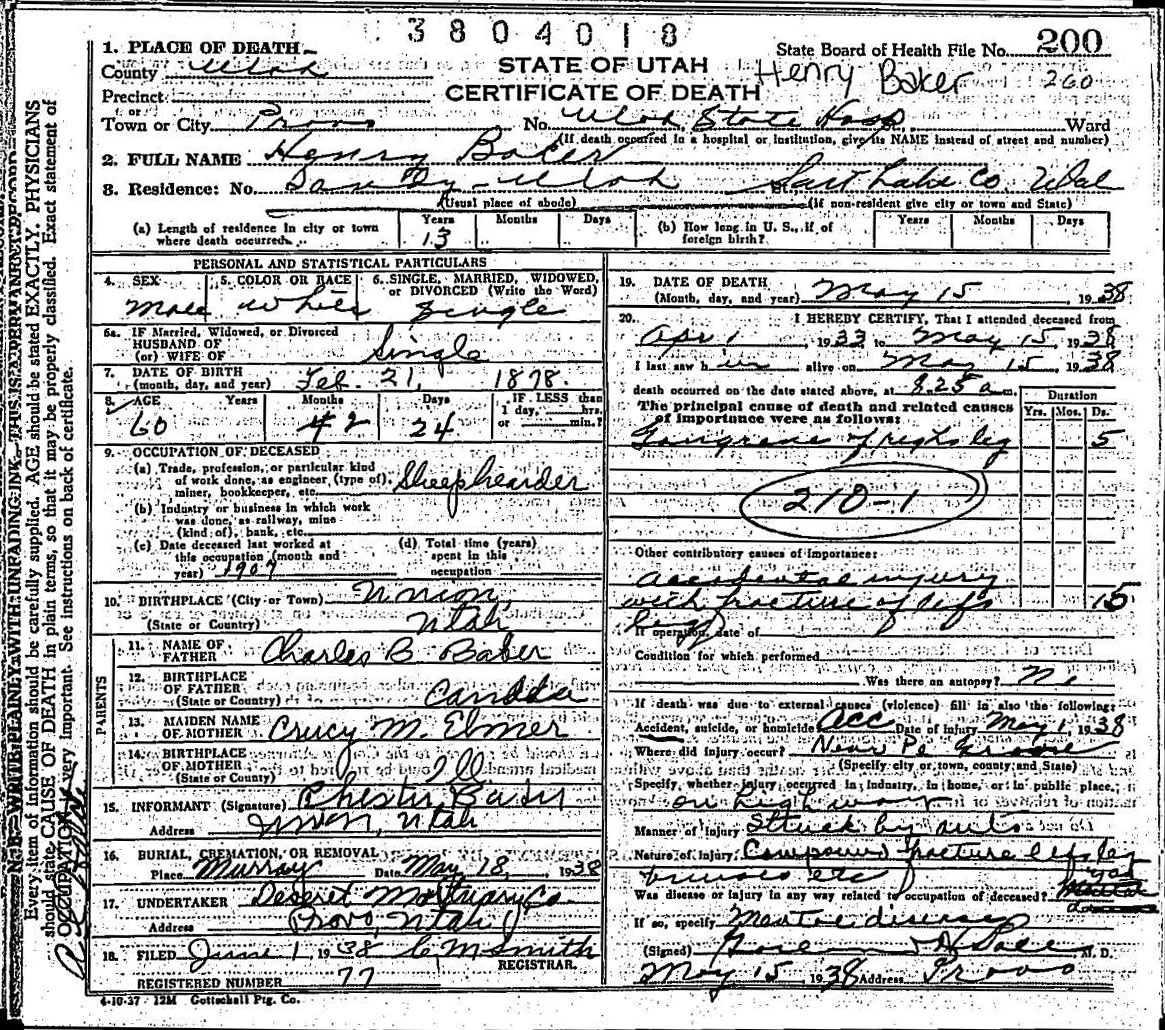 3804018
1. PLACE OF DEATH
State Board of Health File No. 200
County Utah
STATE OF UTAH
Henry Baker 260
Precinct
CERTIFICATE OF DEATH
or
Town or City Provo No. Utah State Hosp Ward
(If death occurred in a hospital or institution, give its NAME instead of street and number)
2. FULL NAME Henry Baker
3. Residence: No. Sandy - Utah Salt Lake Co.
(Usual place of abode) (If non-resident give city or town and State)
(a) Length of residence in city or town where death occurred. Years 13 Months Days
(b) How long in U. S., if of foreign birth? Years Months Days
PERSONAL AND STATISTICAL PARTICULARS
4. SEX Male
5. COLOR OR RACE White
6. SINGLE, MARRIED, WIDOWED, or DIVORCED (Write the Word) Single
6a. IF Married, Widowed, or Divorced
HUSBAND OF
(or) WIFE OF Single
7. DATE OF BIRTH
(month, day, and year) Feb. 21, 1878.
8. AGE Years Months Days IF LESS than
1 day, hrs.
or min.?
60 2 24
9. OCCUPATION OF DECEASED
(a) Trade, profession, or particular kind
of work done, as engineer (type of),
miner, bookkeeper, etc. Sheephearder
(b) Industry or business in which work
was done, as railway, mine
(kind of), bank, etc.
(c) Date deceased last worked at
this occupation (month and
year) 1907
(d) Total time (years)
spent in this
occupation
10. BIRTHPLACE (City or Town) Union,
(State or Country) Utah
PARENTS
11. NAME OF
FATHER Charles B Baker
12. BIRTHPLACE
OF FATHER
(State or Country) Canada
13. MAIDEN NAME
OF MOTHER M. Elmer
14. BIRTHPLACE
OF MOTHER
(State or Country) Ill
15. INFORMANT (Signature) Chester Baker
Address Union, Utah
16. BURIAL, CREMATION, OR REMOVAL
Place Murray Date May 18, 1938
17. UNDERTAKER Deseret Mortuary Co.
Address Provo, Utah
18. FILED June 1 1938 C M Smith
REGISTRAR.
REGISTERED NUMBER 77
4-10-37 12M Gottschall Ptg. Co.
19. DATE OF DEATH
(Month, day, and year) May 15, 1938
20. I HEREBY CERTIFY, That I attended deceased from
Apr 1, 1933 to May 15, 1938
I last saw him alive on May 15, 1938
death occurred on the date stated above, at 8.25 a m.
The principal cause of death and related causes
of importance were as follows:
Duration
Yrs. Mos. Ds.
Gangrene of right leg 5
210-1
Other contributory causes of importance:
Accidental injury
with fracture of left 15
leg
If operation, date of
Condition for which performed
Was there an autopsy? No
If death was due to external causes (violence) fill in also the following:
Accident, suicide, or homicide Acc Date of Injury May 1, 1938
Where did injury occur? Near Pl Grove
(Specify city or town, county and State)
Specify whether injury occurred in industry, in home, or in public place,
on highway
Manner of Injury Struck by auto
Nature of Injury Compound fracture left leg
bruises etc
Was disease or injury in any way related to occupation of deceased?
If so, specify disease
(Signed) M. D.
May 15 1938 Address Provo
N. B.—WRITE PLAINLY WITH UNFADING INK—THIS IS A PERMANENT RECORD.
Every item of information should be carefully supplied. AGE should be stated EXACTLY. PHYSICIANS
should state CAUSE OF DEATH in plain terms, so that it may be properly classified. Exact statement of
OCCUPATION very important. See instructions on back of certificate.